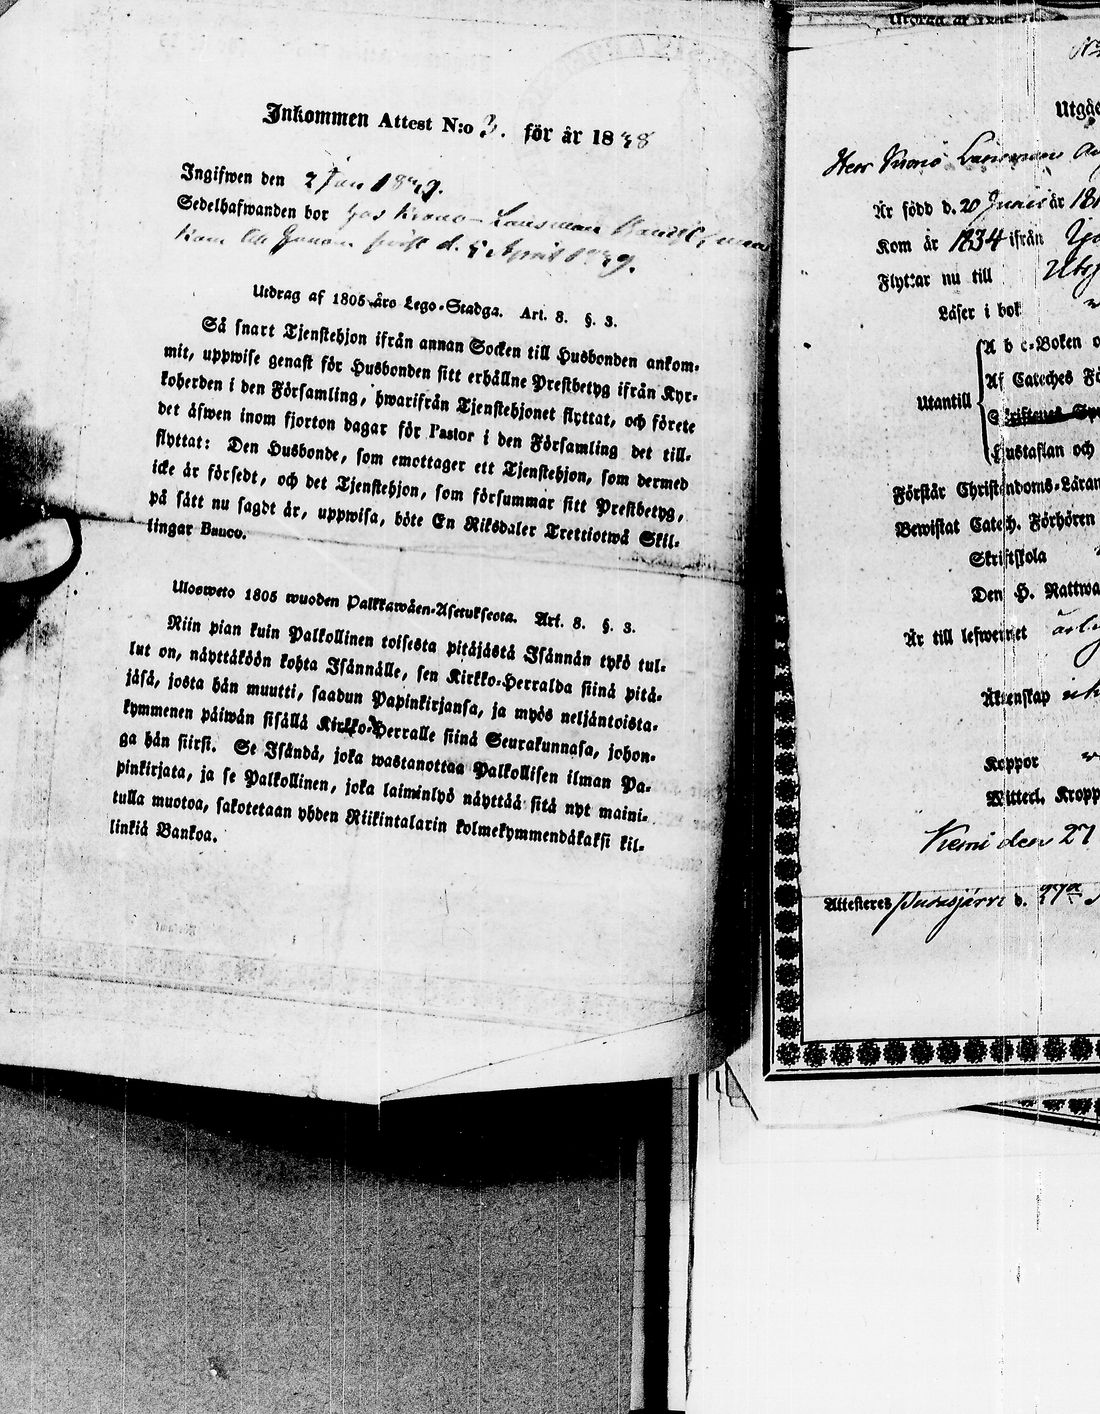 Inkommen Attest N:o 3. för år 1838
Ingifwen den 2 Jan 1839.
Sedelhafwanden bor hos Krono-Länsman
Kom till Genom skrift d. 5 April 1839.
Utdrag af 1805 åro Lego-Stadga. Art. 8. §. 3.
Så snart Tjenstehjon ifrån annan Socken till Husbonden ankom-
mit, uppwise genast för Husbonden sitt erhållne Prestbetyg ifrån Kyr-
koherden i den Församling, hwarifrån Tjenstehjonet flyttat, och förete
det åfwen inom fjorton dagar för Pastor i den Församling det till-
flyttat: Den Husbonde, som emottager ett Tjenstehjon, som dermed
icke är försedt, och det Tjenstehjon, som försummar sitt Prestbetyg,
på sätt nu sagdt är, uppwisa, böte En Riksdaler Trettiotwå Skil-
lingar Banco.
Ulosweto 1805 wuoden Palkkawäen-Asetuksesta. Art. 8. §. 3.
Niin pian kuin Palkollinen toisesta pitäjästä Isännän tykö tul-
lut on, näyttäköön kohta Isännälle, sen Kirkko-Herralda siinä pitä-
jäsä, josta hän muutti, saadun Papinkirjansa, ja myös neljäntoista-
kymmenen päiwän sisällä Kirkko-Herralle siinä Seurakunnasa, johon-
ga hän siirsi. Se Isändä, joka wastanottaa Palkollisen ilman Pa-
pinkirjata, ja se Palkollinen, joka laiminlyö näyttää sitä nyt maini-
tulla muotoa, sakotetaan yhden Riikintalarin kolmekymmendäkaksi kil-
linkiä Bankoa.
N:o
Utgåe
Herr Krono Länsman
Är född d. 20 Junii år 18
Kom år 1834 ifrån
Flyttar nu till
Läser i bok
A b c-Boken
Af Cateches
Utantill
Skriftenes
Hustaflan och
Förstår Christendoms-Läran
Bewistat Catech. Förhören
Skriftskola
Den H. Nattwa
Är till lefwernet
Äktenskap
Koppor
Mitterl. Kropp
Kemi den 27
Attesteres Pudasjärvi d. 27